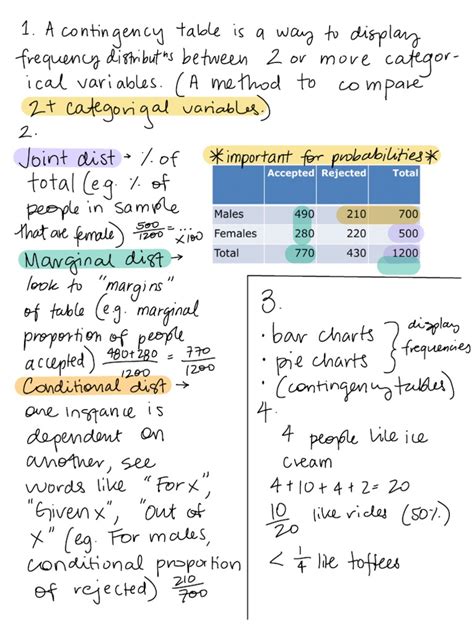 1. A contingency table is a way to display
frequency distributns between 2 or more categor-
ical variables. (A method to compare
2+ categorigal variables.)
2.
Joint dist → % of
total (eg. % of
people in sample
that are female) 500/1200 = ... x100
Marginal dist →
look to "margins"
of table (e.g. marginal
proportion of people
accepted) 480+280/1200 = 770/1200
Conditional dist →
one instance is
dependent on
another, see
words like "For x",
"Given x", "Out of
x" (eg. For males,
conditional proportion
of rejected) 210/700
*important for probabilities*
Accepted Rejected Total
Males 490 210 700
Females 280 220 500
Total 770 430 1200
3.
• bar charts
• pie charts
} display
frequencies
• (contingency tables)
4.
4 people like ice
cream
4+10+4+2=20
10/20 like rides (50%)
< 1/4 like toffees